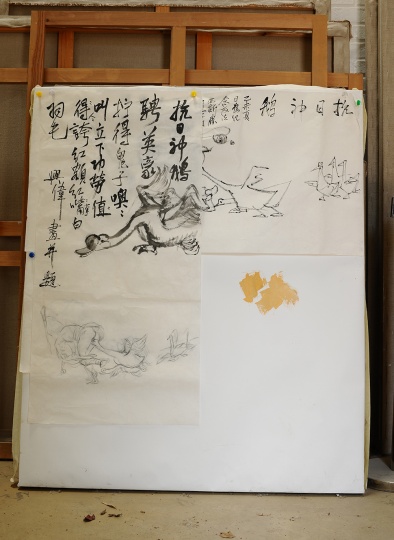 抗日神鵝
抗日神鵝
聘英豪
拧得鬼子嗷〻
叫立下功勞值
得誇紅額紅嘴白
羽毛 興偉畫并題